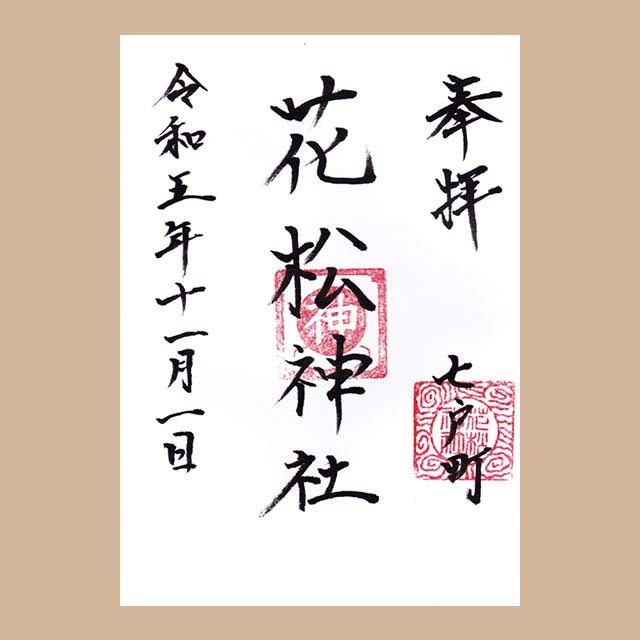 奉拝
七戸町
花松神社
神
令和五年十一月一日